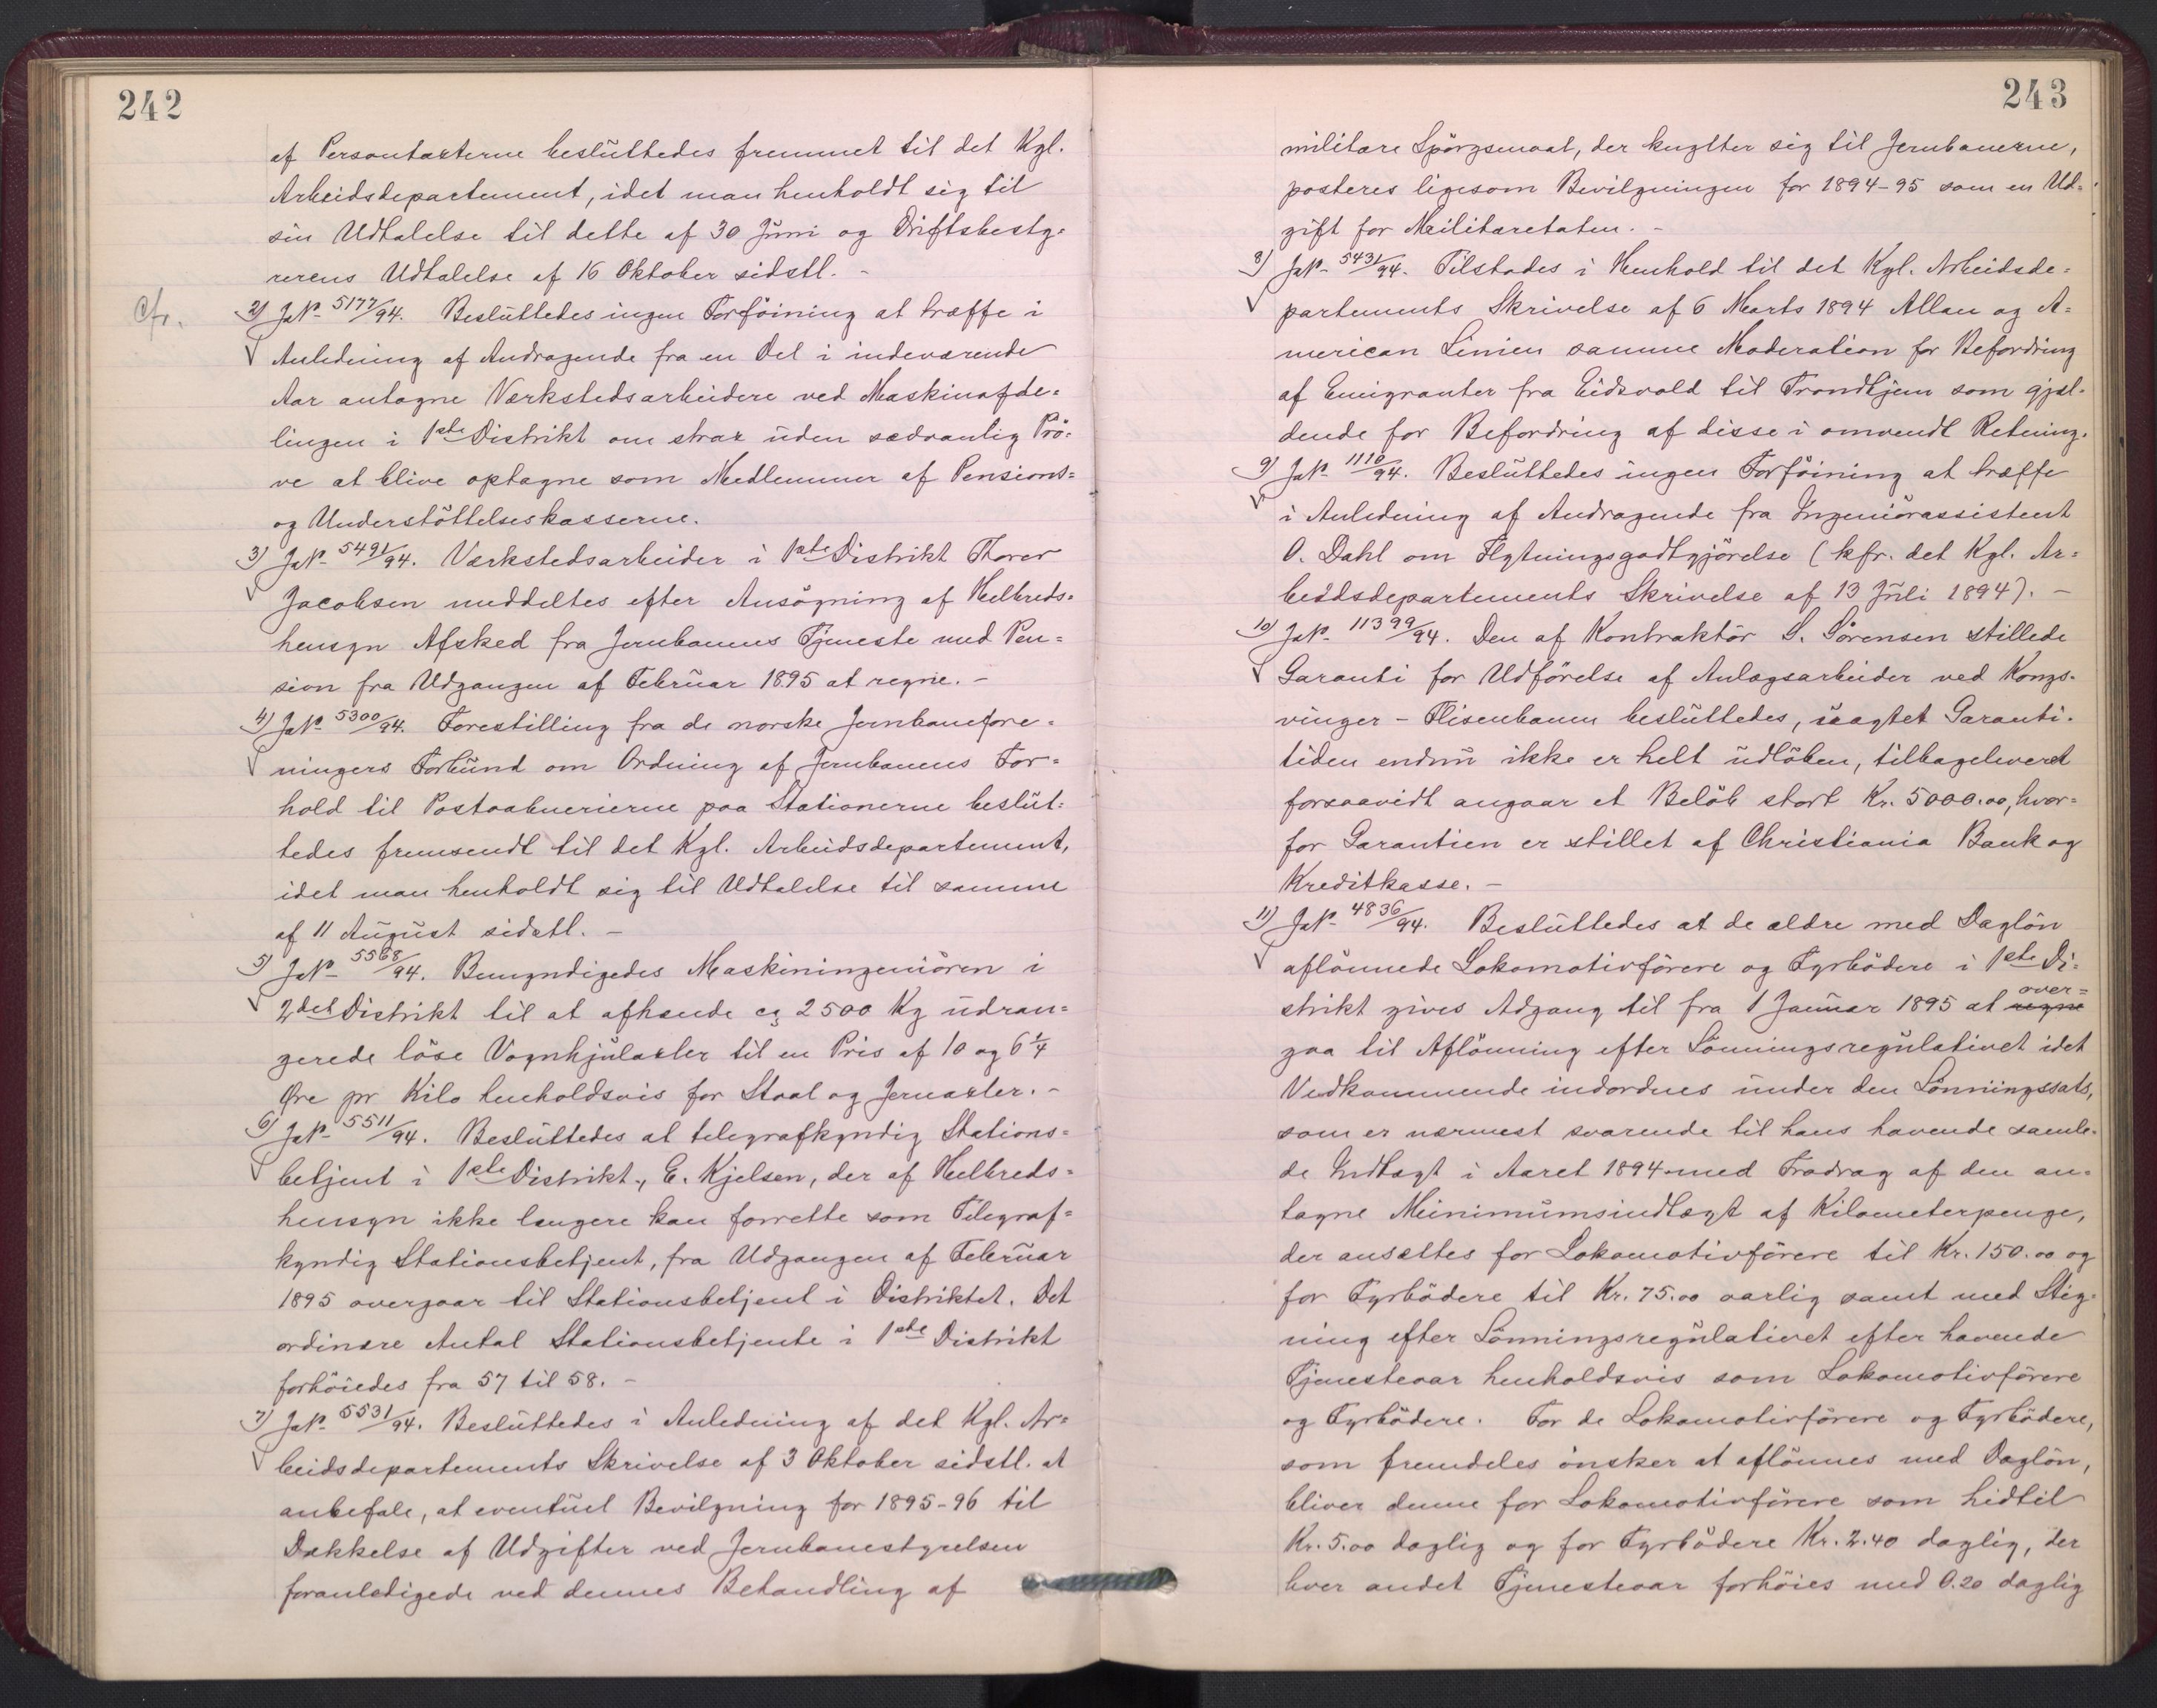 242
af Persontaxterne besluttedes fremmet til det Kgl.
Arbeidsdepartement, idet man henholdt sig til
sin Udtalelse til dette af 30 Juni og Driftsbesty=
rerens Udtalelse af 16 Oktober sidstl. -
Cfr.
2) JNo 5177/94. Besluttedes ingen Forföining at træffe i
Anledning af Andragende fra en Del i indeværende
Aar antagne Værkstedsarbeidere ved Maskinafde=
lingen i 1ste Distrikt om strax uden sædvanlig Prö=
ve at blive optagne som Medlemmer af Pensions=
og Understöttelseskasserne.
3) JNo 5491/94. Værkstedsarbeider i 1ste Distrikt Thorer
Jacobsen meddeltes efter Ansögning af Helbreds=
hensyn Afsked fra Jernbanens Tjeneste med Pen=
sion fra Udgangen af Februar 1895 at regne. -
4) JNo 5300/94. Forestilling fra de norske Jernbanefore=
ningers Forbund om Ordning af Jernbanens For=
hold til Postaabnerierne paa Stationerne beslut=
tedes fremsendt til det Kgl. Arbeidsdepartement,
idet man henholdt sig til Udtalelse til samme
af 11 August sidstl. -
5) JNo 5568/94. Bemyndigedes Maskiningeniören i
2det Distrikt til at afhænde ca 2500 Kg udran=
gerede löse Vognhjulaxler til en Pris af 10 og 6 1/4
Øre pr Kilo henholdsvis for Staal og Jernaxler. -
6) JNo 5511/94. Besluttedes at telegrafkyndig Stations=
betjent i 1ste Distrikt, E. Kjelsen, der af Helbreds=
hensyn ikke længere kan forrette som Telegraf=
kyndig Stationsbetjent, fra Udgangen af Februar
1895 overgaar til Stationsbetjent i Distriktet. Det
ordinære Antal Stationsbetjente i 1ste Distrikt
forhöiedes fra 57 til 58. -
7) JNo 5531/94. Besluttedes i Anledning af det Kgl. Ar=
beidsdepartements Skrivelse af 3 Oktober sidstl. at
anbefale, at eventuel Bevilgning for 1895-96 til
Dækkelse af Udgifter ved Jernbanestyrelsen
foranledigede ved dennes Behandling af
243
militære Spörgsmaal, der knytter sig til Jernbanerne,
posteres ligesom Bevilgningen for 1894-95 som en Ud=
gift for Militæretaten. -
8) JNo 5431/94. Tilstodes i Henhold til det Kgl. Arbeidsde=
partements Skrivelse af 6 Marts 1894 Allan og A=
merican Linien samme Moderation for Befordring
af Emigranter fra Eidsvold til Trondhjem som gjæl=
dende for Befordring af disse i omvendt Retning.
9) JNo 1110/94. Besluttedes ingen Forföining at træffe
i Anledning af Andragende fra Ingeniörassistent
O. Dahl om Flytningsgodtgjörelse (kfr. det Kgl. Ar=
beidsdepartements Skrivelse af 13 Juli 1894). -
10) JNo 11399/94. Den af Kontraktör S. Sörensen stillede
Garanti for Udförelse af Anlægsarbeider ved Kongs=
vinger - Flisenbanen besluttedes, uagtet Garanti=
tiden endnu ikke er helt udlöben, tilbageleveret
forsaavidt angaar et Belöb stort Kr. 5000.00, hvor=
for Garantien er stillet af Christiania Bank og
Kreditkasse. -
11) JNo 4836/94. Besluttedes at de ældre med Daglön
aflönnede Lokomotivförere og Fyrbödere i 1ste Di=
strikt gives Adgang til fra 1 Januar 1895 at regne over=
gaa til Aflönning efter Lönningsregulativet idet
Vedkommende indordnes under den Lönningssats,
som er nærmest svarende til hans havende samle=
de Indtægt i Aaret 1894 med Fradrag af den an=
tagne Minimumsindtægt af Kilometerpenge,
der ansættes for Lokomotivförere til Kr. 150.00 og
for Fyrbödere til Kr. 75.00 aarlig samt med Stig=
ning efter Lönningsregulativet efter havende
Tjenesteaar henholdsvis som Lokomotivförere
og Fyrbödere. For de Lokomotivförere og Fyrbödere,
som fremdeles önsker at aflönnes med Daglön,
bliver denne for Lokomotivförere som hidtil
Kr. 5.00 daglig og for Fyrbödere Kr. 2.40 daglig, der
hver andet Tjenesteaar forhöies med 0.20 daglig